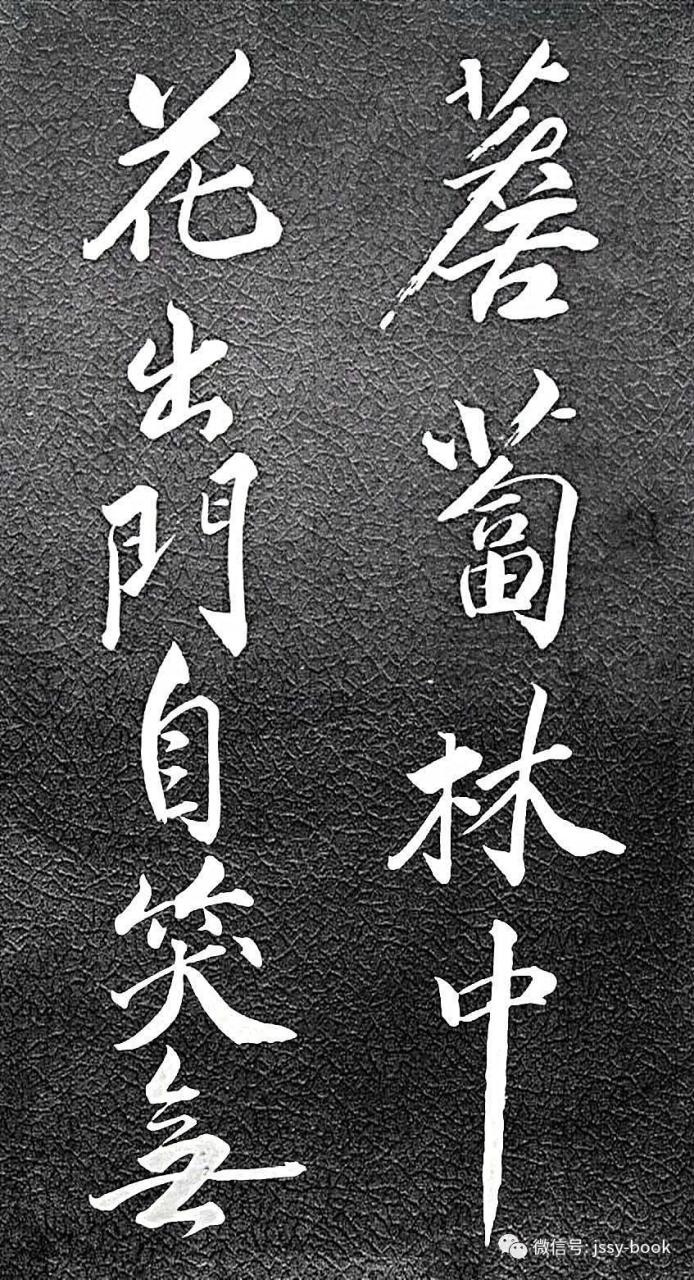 薝蔔林中
花出門自笑無
微信号: jssy-book